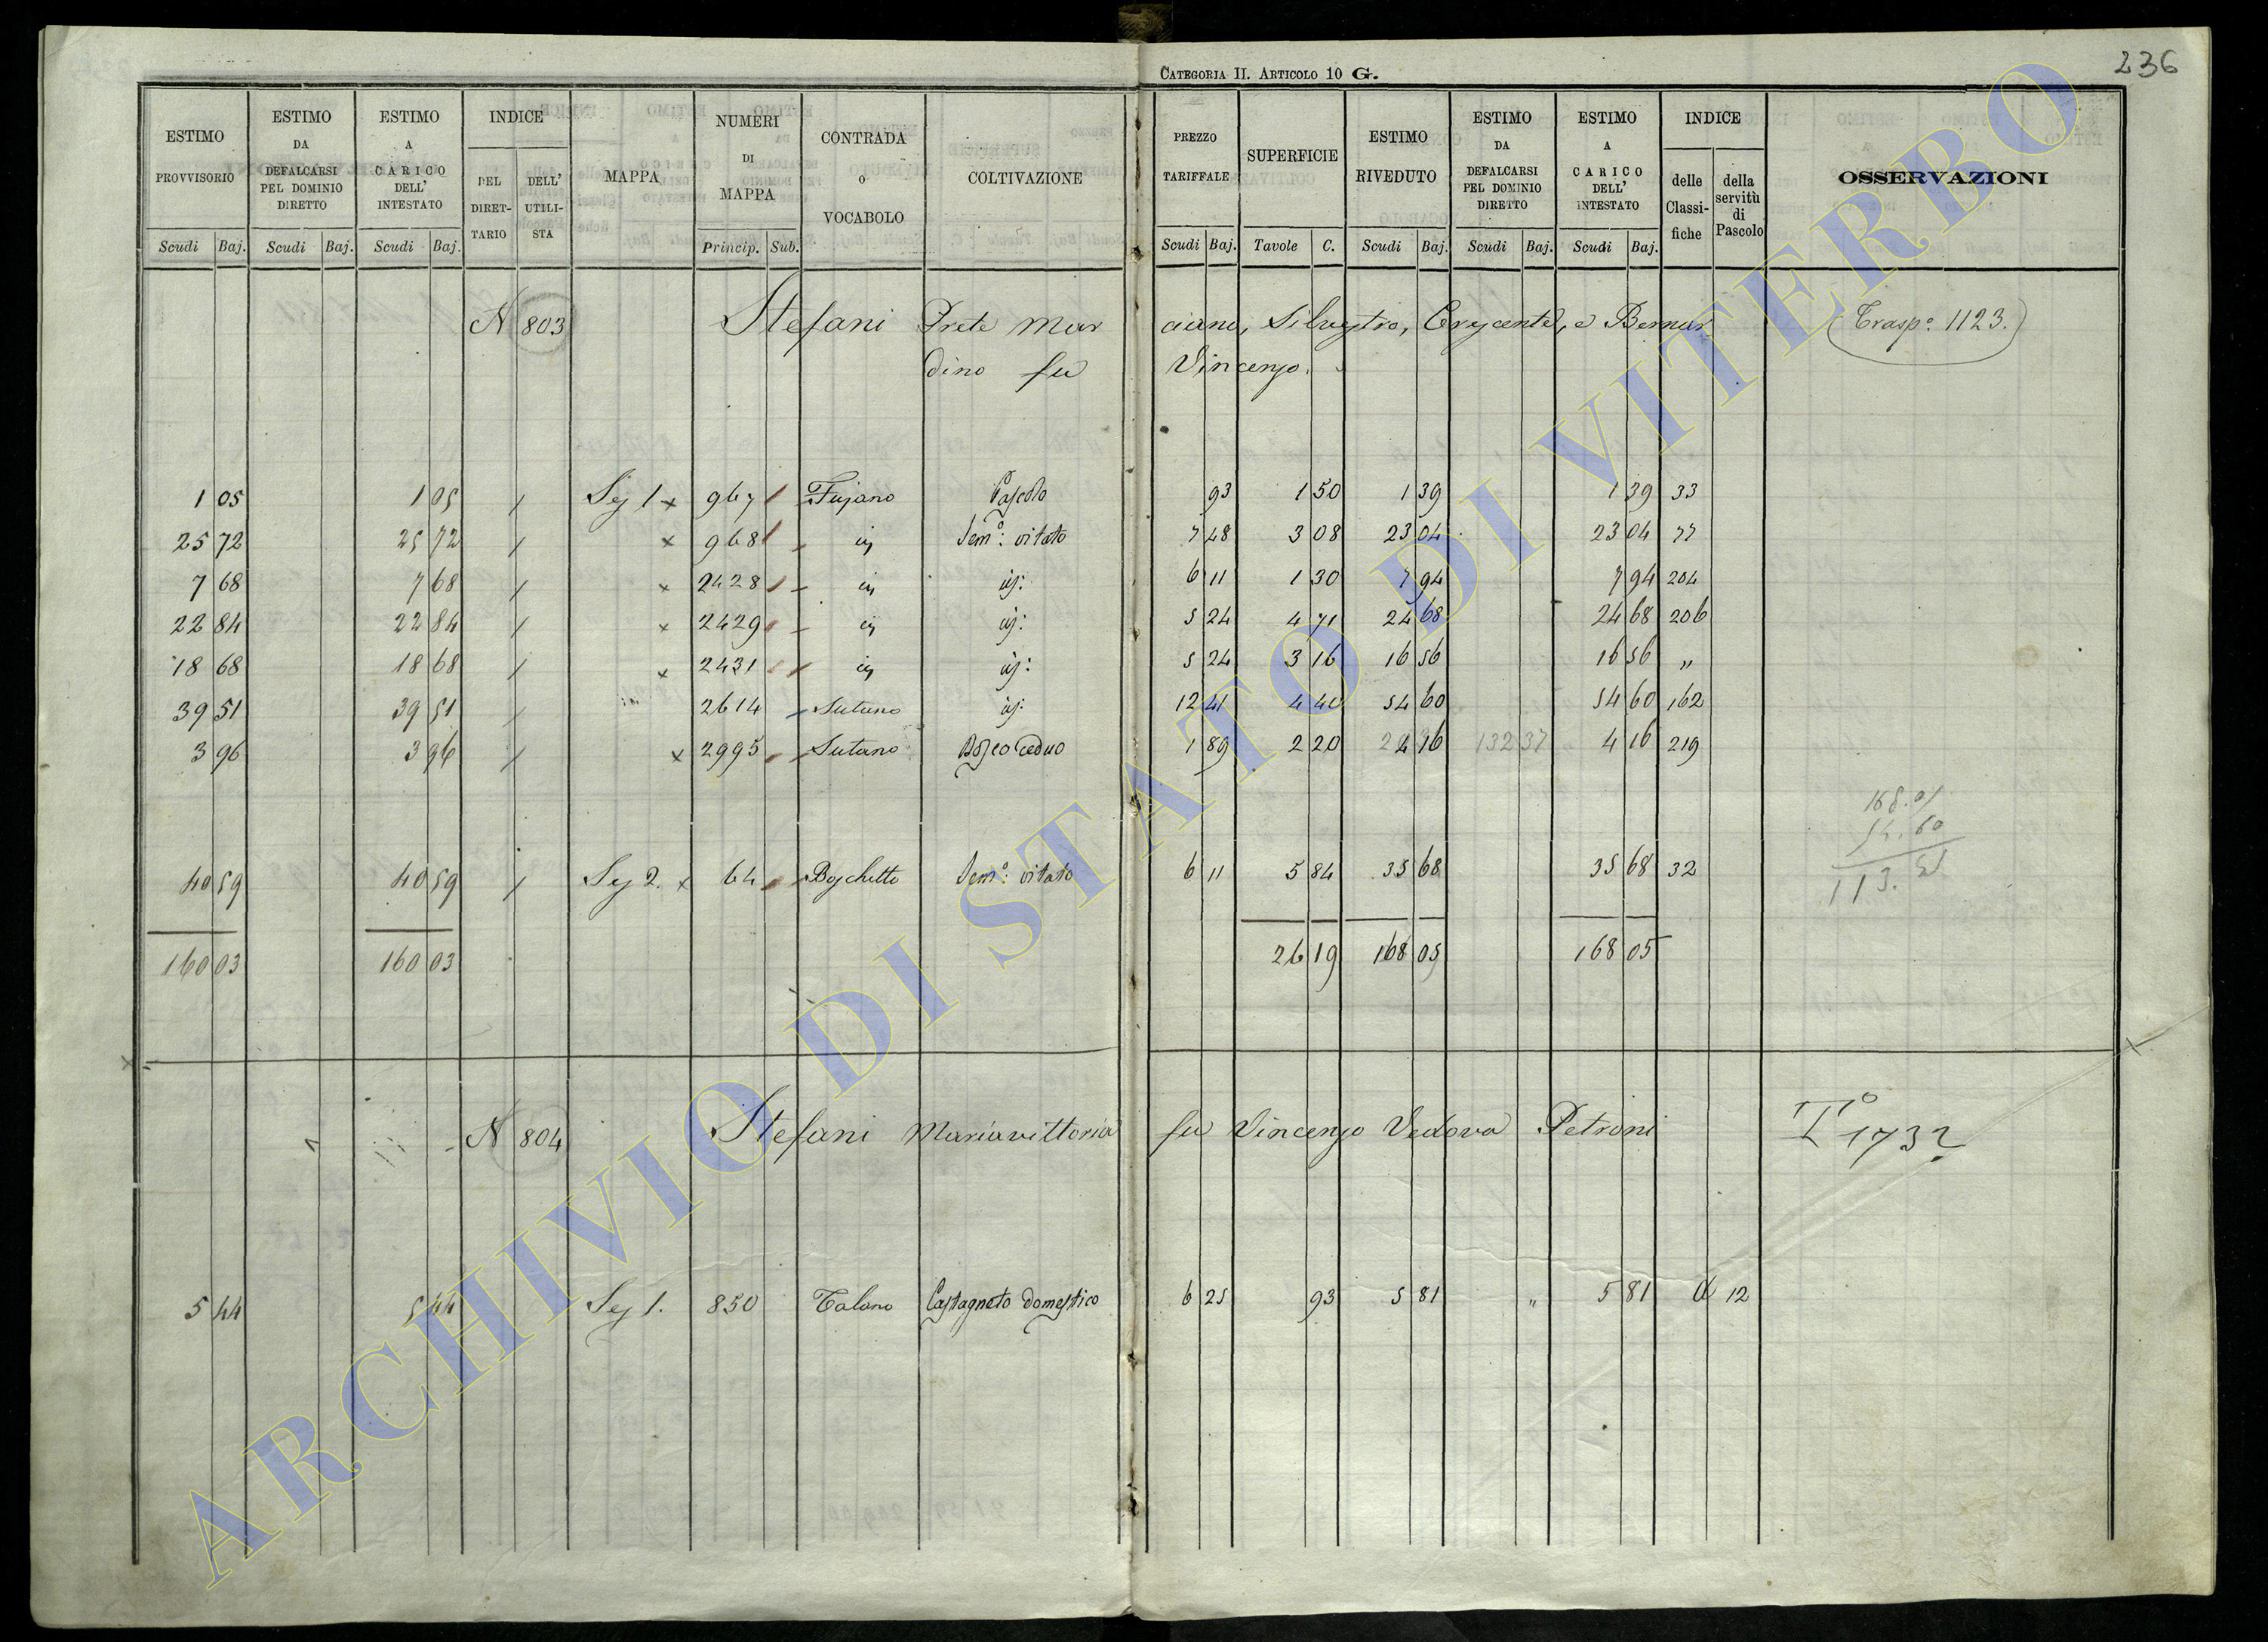 CATEGORIA II. ARTICOLO 10 G.
236
ESTIMO PROVVISORIO Scudi Baj.
ESTIMO DA DEFALCARSI PEL DOMINIO DIRETTO Scudi Baj.
ESTIMO A CARICO DELL' INTESTATO Scudi Baj.
INDICE DEL DIRET-TARIO DELL' UTILI-STA
MAPPA
NUMERI DI MAPPA Princip. Sub.
CONTRADA O VOCABOLO
COLTIVAZIONE
PREZZO TARIFFALE Scudi Baj.
SUPERFICIE Tavole C.
ESTIMO RIVEDUTO Scudi Baj.
ESTIMO DA DEFALCARSI PEL DOMINIO DIRETTO Scudi Baj.
ESTIMO A CARICO DELL' INTESTATO Scudi Baj.
INDICE delle Classi-fiche della servitù di Pascolo
OSSERVAZIONI
N 803 Stefani Prete Mar ciano, Silvestro, Crescente, e Bernar Trasp.o 1123.
dino fu Vincenzo.
1 05 1 05 / Sez 1 x 967 Fujano Pascolo 93 1 50 1 39 1 39 33
25 72 25 72 / x 968 Sem.o: vitato 7 48 3 08 23 04 23 04 77
7 68 7 68 / x 2428 6 11 1 30 7 94 7 94 204
22 84 22 84 / x 2429 5 24 4 71 24 68 24 68 206
18 68 18 68 / x 2431 5 24 3 16 16 56 16 56 "
39 51 39 51 / 2614 Sutano 12 41 4 40 54 60 54 60 162
3 96 3 96 / x 2995 Sutano Bosco ceduo 1 89 2 20 4 16 132 37 4 16 219
168.01
54.60
113.
40 59 40 59 / Sez 2. x 64 Boschetto Sem.o: vitato 6 11 5 84 35 68 35 68 32
160 03 160 03 26 19 168 05 168 05
N 804 Stefani Mariavittoria fu Vincenzo Vedova Petroni T.o 1732
5 44 5 44 Sez 1. 850 Talano Castagneto domestico 6 25 93 5 81 " 5 81 12
ARCHIVIO DI STATO DI VITERBO